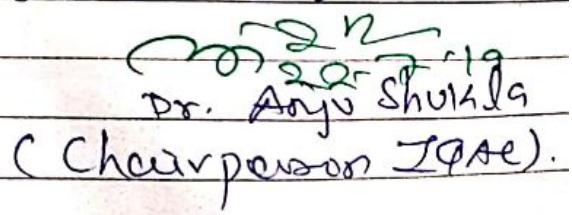 22-7-19
Dr. Anju Shukla
(Chairperson IQAC).